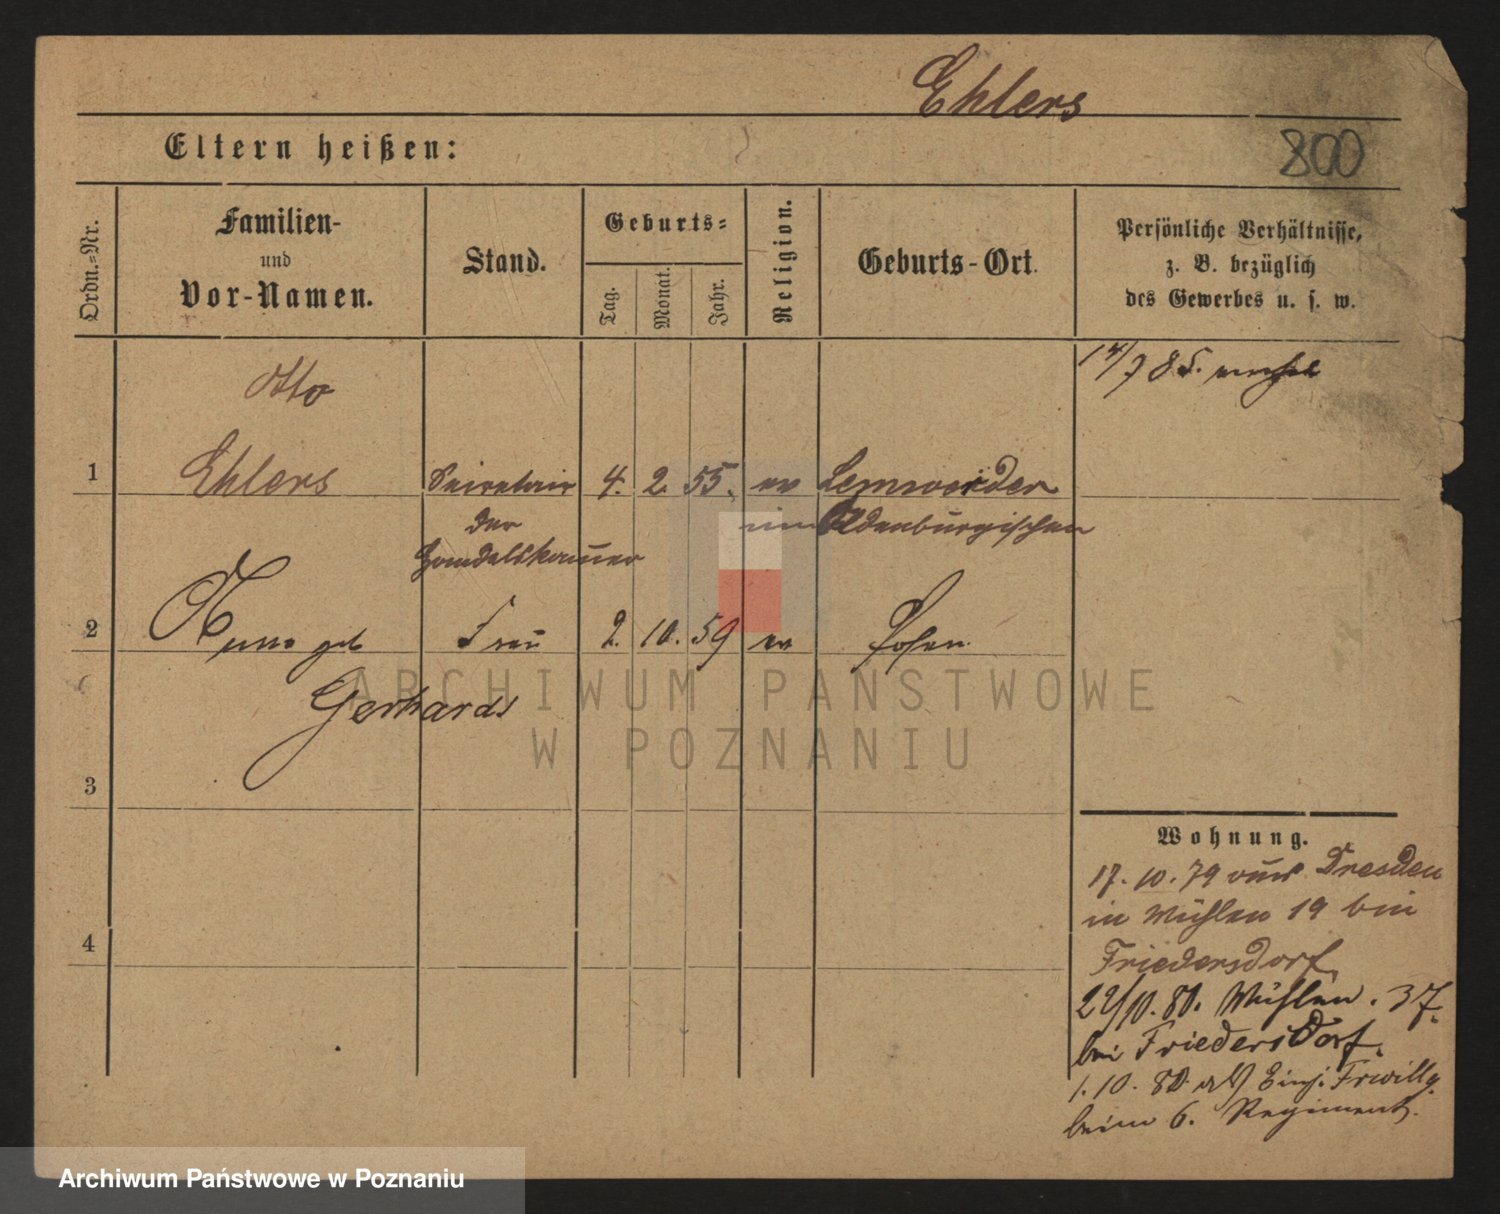 Ehlers
800
Eltern heißen:
Ordn.-Nr.
Familien-
und
Vor-Namen.
Stand.
Geburts-
Tag.
Monat.
Jahr.
Religion.
Geburts-Ort.
Persönliche Verhältnisse,
z. B. bezüglich
des Gewerbes u. s. w.
Otto
85.
1 Ehlers Secretair 4. 2. 55. ev Lemwerder
der im Oldenburgischen
Handelskammer
2 geb Frau 2. 10. 59 ev Posen
Gerhards
ARCHIWUM PAŃSTWOWE
W POZNANIU
3
Wohnung.
17. 10. 79 Dresden
in Mühlen 19 bei
4
Friedersdorf.
22/10. 80. Mühlen. 37.
bei Friedersdorf.
1. 10. 80. als Einj. Friwillg.
beim 6. Regiment.
Archiwum Państwowe w Poznaniu